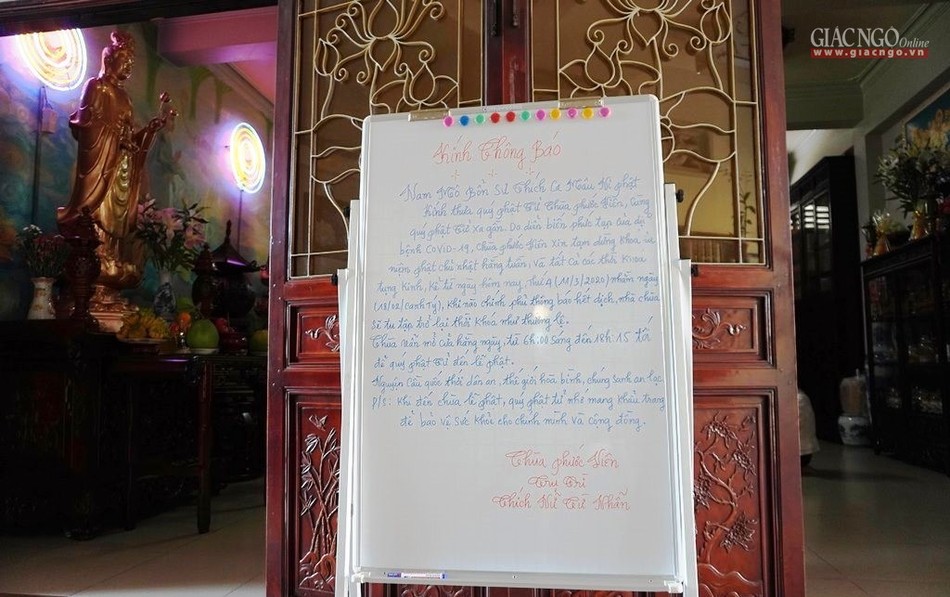 GIÁC NGỘ Online
www.giacngo.vn
Kính Thông Báo
Nam Mô Bổn Sư Thích Ca Mâu Ni Phật
Kính thưa quý phật tử Chùa Phước Viên, Cùng
quý phật tử xa gần. Do diễn biến phức tạp của dịch
bệnh COVID-19, Chùa Phước Viên Xin tạm dừng Khóa tu
niệm phật chủ nhật hằng tuần, và tất cả các thời Khóa
tụng Kinh, Kể từ ngày hôm nay, Thứ 4 (11/3/2020) nhằm ngày
(18/02/Canh Tý), Khi nào chính phủ thông báo hết dịch, nhà chùa
Sẽ tu tập trở lại thời Khóa như thường lệ.
Chùa vẫn mở cửa hằng ngày, từ 6h:00 sáng đến 18h:15 tối
để quý phật tử đến lễ phật.
Nguyện Cầu quốc thới dân an, thế giới hòa bình, chúng sanh an lạc.
P/S: Khi đến chùa lễ phật, quý phật tử nhớ mang khẩu trang
để bảo vệ sức khỏe cho chính mình và cộng đồng.
Chùa Phước Viên
Trụ Trì
Thích Nữ Từ Nhẫn